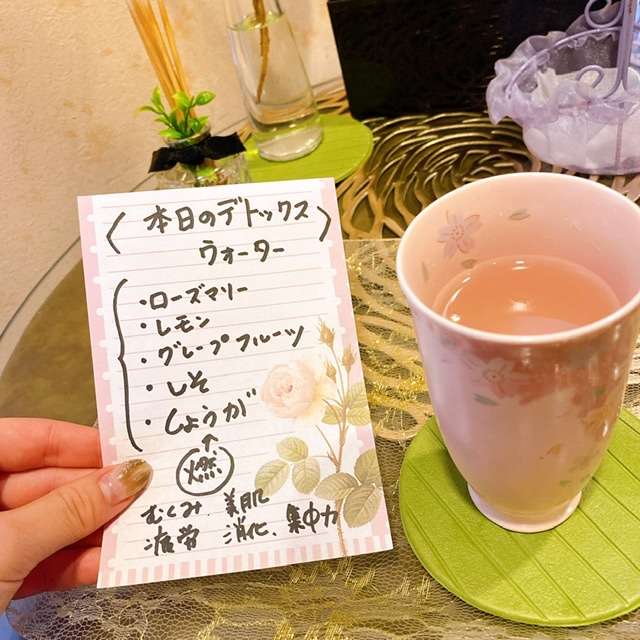 〈本日のデトックス
ウォーター〉
・ローズマリー
・レモン
・グレープフルーツ
・しそ
・しょうが
↑
燃
むくみ、美肌
疲労 消化、集中力